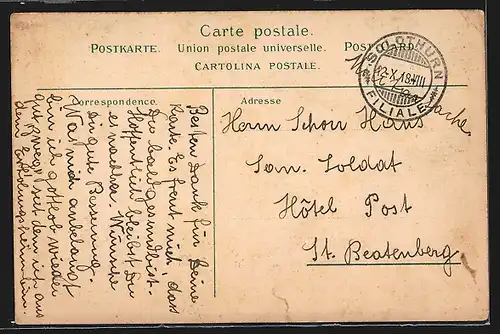 Carte postale.
POSTKARTE. Union postale universelle. POSTCARD.
CARTOLINA POSTALE.
SOLOTHURN
12.X.18-VIII
FILIALE
Correspondence.
Adresse
Herrn Schori Hans
San. Soldat
Hôtel Post
St. Beatenberg
Besten Dank für Deine
Karte. Es freut mich, dass
Du bald gesund bist.
Hoffentlich bleibst Du
es nachher. Wünsche
Dir gute Besserung.
Was mich anbelangt
bin ich gottlob wieder
zweg seit dem ich aus
dem